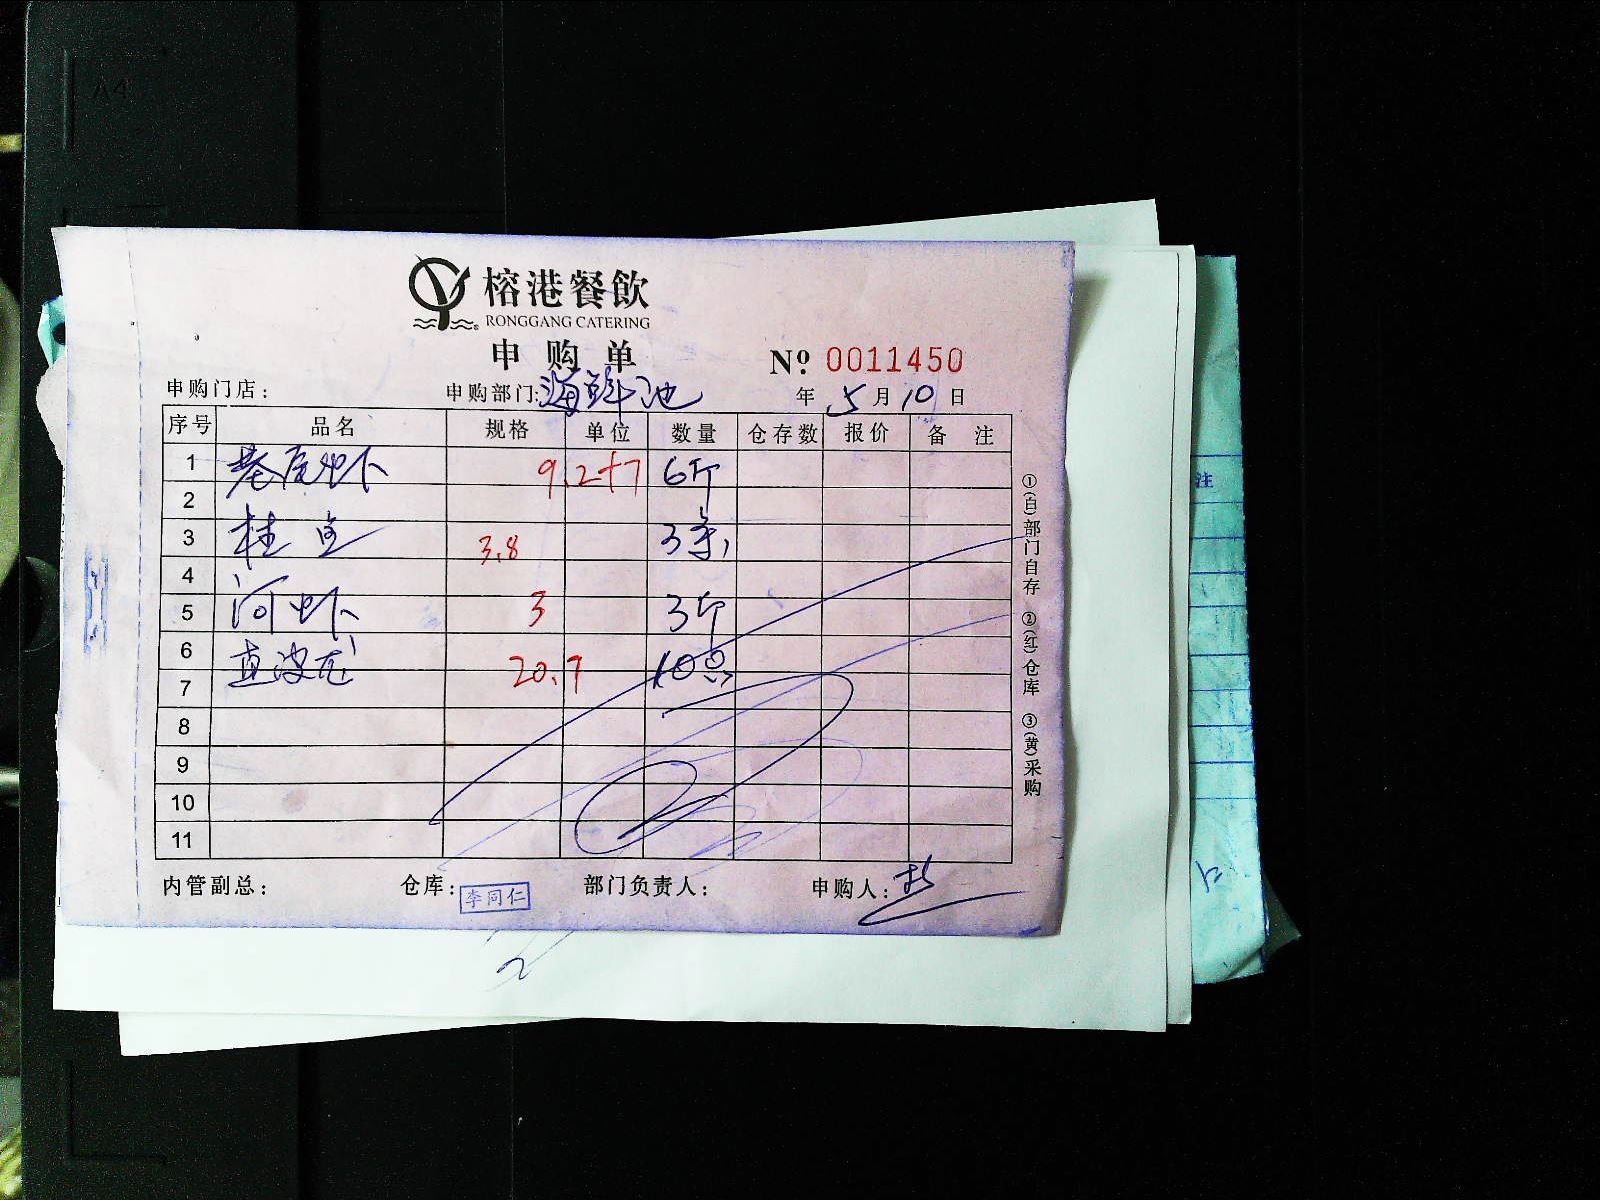 A4
榕港餐飲
RONGGANG CATERING
申购单 Nº 0011450
申购门店: 申购部门: 海鲜池 年 5 月 10 日
序号 品名 规格 单位 数量 仓存数 报价 备注
1 基尾虾 9.2+7 6斤
2
3 桂鱼 3.8 3条
4
5 河虾 3 3斤
6
7 20.7 10只
8
9
10
11
①(白)部门自存 ②(红)仓库 ③(黄)采购
内管副总: 仓库: 李同仁 部门负责人: 申购人:
注